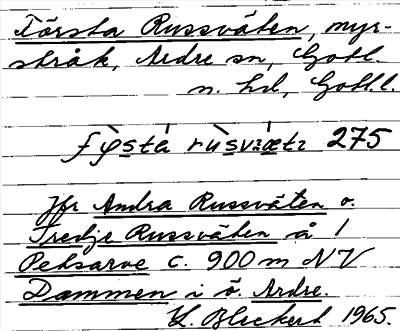 Första Russväten, myr-
stråk, Ardre sn, Gotl.
n. hd, Gotl. l.
fỳsta rùsvætɩ 275
Jfr Andra Russväten o.
Tredje Russväten å 1
Petsarve c. 900 m NV
Dammen i ö. Ardre.
H. Bleckert 1965.